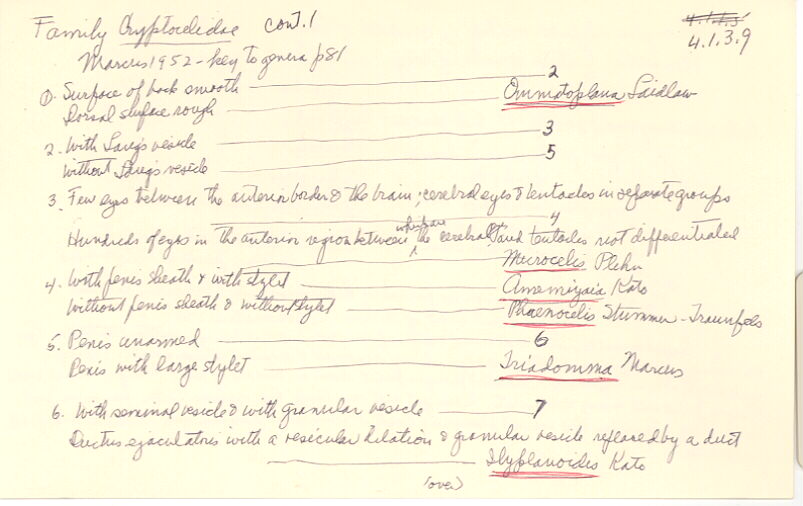 Family Cryptocelidae cont.1
4.1.3.9
Marcus 1952 - key to genera p81
1. Surface of back smooth 2
Dorsal surface rough Ommatoplana Laidlaw
2. With Lang's vesicle 3
Without Lang's vesicle 5
3. Few eyes between the anterior border & the brain; cerebral eyes & tentacles in separate groups
4
Hundreds of eyes in the anterior region between the cerebral and tentacles not differentiated
Microcelis Plehn
4. With penis sheath & with stylet Amemiyaia Kato
Without penis sheath & without stylet Phaenocelis Stummer-Traunfels
5. Penis unarmed 6
Penis with large stylet Triadomma Marcus
6. With seminal vesicle & with granular vesicle 7
Ductus ejaculatoris with a vesicular dilation & granular vesicle replaced by a duct
Ilyplanoides Kato
(over)